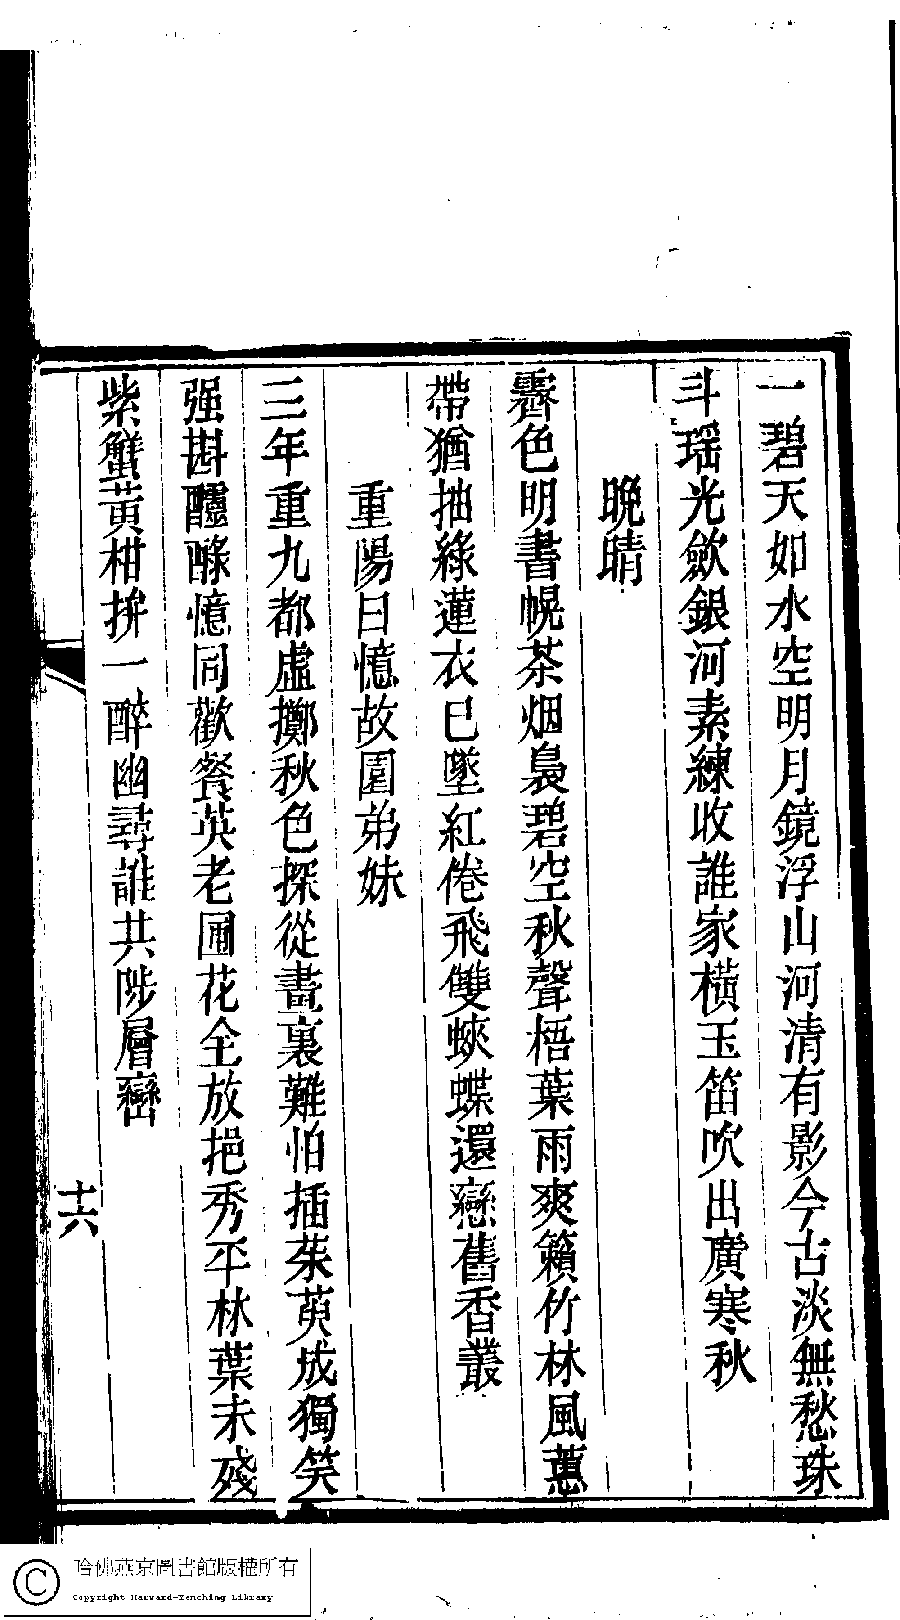 一碧天如水空明月鏡浮山河清有影今古淡無愁珠
斗瑶光歛銀河素練收誰家橫玉笛吹出廣寒秋
晩晴
霽色明書幌茶烟裊碧空秋聲梧葉雨爽籟竹林風蕙
帶猶抽綠蓮衣已墜紅倦飛雙蛺蝶還戀舊香叢
重陽日憶故園弟妹
三年重九都虛擲秋色探從畫裏難怕插茱萸成獨笑
强斟醽醁憶同歡餐英老圃花全放挹秀平林葉未殘
紫蟹黃柑拚一醉幽尋誰共陟層巒
十六
哈佛燕京圖書館版權所有
Copyright Harvard-Yenching Library